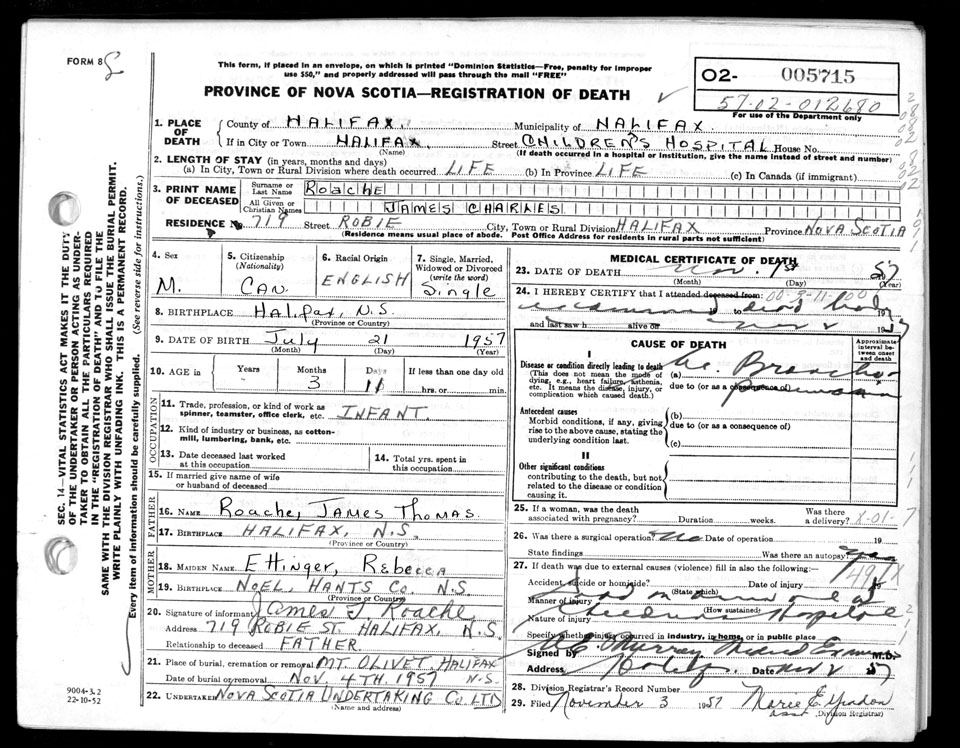 FORM 8
This form, if placed in an envelope, on which is printed "Dominion Statistics—Free, penalty for improper
use $50," and properly addressed will pass through the mail "FREE"
PROVINCE OF NOVA SCOTIA—REGISTRATION OF DEATH
02- 005715
57-02-012680
For use of the Department only
1. PLACE OF DEATH
County of HALIFAX. Municipality of HALIFAX.
If in City or Town HALIFAX. Street CHILDREN'S HOSPITAL House No.
(Name) (If death occurred in a hospital or institution, give the name instead of street and number)
2. LENGTH OF STAY (in years, months and days)
(a) In City, Town or Rural Division where death occurred LIFE (b) In Province LIFE (c) In Canada (if immigrant)
3. PRINT NAME OF DECEASED
Surname or Last Name ROACHE
All Given or Christian Names JAMES CHARLES
RESIDENCE No 719 Street ROBIE City, Town or Rural Division HALIFAX Province NOVA SCOTIA
(Residence means usual place of abode. Post Office Address for residents in rural parts not sufficient)
4. Sex M.
5. Citizenship (Nationality) CAN.
6. Racial Origin ENGLISH
7. Single, Married, Widowed or Divorced (write the word) Single
8. BIRTHPLACE Halifax, N.S.
(Province or Country)
9. DATE OF BIRTH July 21 1957
(Month) (Day) (Year)
10. AGE in Years Months 3 Days 11 If less than one day old hrs. or min.
OCCUPATION
11. Trade, profession, or kind of work as spinner, teamster, office clerk, etc. INFANT
12. Kind of industry or business, as cotton-mill, lumbering, bank, etc.
13. Date deceased last worked at this occupation
14. Total yrs. spent in this occupation
15. If married give name of wife or husband of deceased
FATHER
16. NAME ROACHE, JAMES THOMAS.
17. BIRTHPLACE HALIFAX, N.S.
(Province or Country)
MOTHER
18. MAIDEN NAME ETTINGER, REBECCA
19. BIRTHPLACE NOEL, HANTS CO. N.S.
(Province or Country)
20. Signature of informant James T Roache
Address 719 ROBIE ST. HALIFAX, N.S.
Relationship to deceased FATHER.
21. Place of burial, cremation or removal MT. OLIVET, HALIFAX
Date of burial or removal NOV. 4TH. 1957 N.S.
22. UNDERTAKER NOVA SCOTIA UNDERTAKING CO. LTD
(Name and address)
MEDICAL CERTIFICATE OF DEATH
23. DATE OF DEATH Nov. 1st 57
(Month) (Day) (Year)
24. I HEREBY CERTIFY that I attended deceased from:
to dead body 19
and last saw h alive on Nov 2 1957
CAUSE OF DEATH
Approximate interval between onset and death
I
Disease or condition directly leading to death
(This does not mean the mode of dying, e.g., heart failure, asthenia, etc. It means the disease, injury, or complication which caused death.)
(a) Ac. Broncho-
due to (or as a consequence of) pneumonia
Antecedent causes
Morbid conditions, if any, giving rise to the above cause, stating the underlying condition last.
(b)
due to (or as a consequence of)
(c)
II
Other significant conditions
contributing to the death, but not related to the disease or condition causing it.
25. If a woman, was the death associated with pregnancy? Duration weeks. Was there a delivery? X-01-7
26. Was there a surgical operation? No Date of operation 19
State findings Was there an autopsy? yes
27. If death was due to external causes (violence) fill in also the following:—
Accident, suicide or homicide? Date of injury 19
(State which)
Manner of injury
(How sustained)
Nature of injury
Specify whether injury occurred in industry, in home, or in public place
Signed by Murray M.D.
Address Halifax Date Nov 2 57
28. Division Registrar's Record Number
29. Filed November 3 1957 Marie E.
Asst. (Division Registrar)
SEC. 14—VITAL STATISTICS ACT MAKES IT THE DUTY
OF THE UNDERTAKER OR PERSON ACTING AS UNDER-
TAKER TO OBTAIN ALL THE PARTICULARS REQUIRED
IN THE "REGISTRATION OF DEATH" AND TO FILE THE
SAME WITH THE DIVISION REGISTRAR WHO SHALL ISSUE THE BURIAL PERMIT.
WRITE PLAINLY WITH UNFADING INK. THIS IS A PERMANENT RECORD.
Every item of information should be carefully supplied. (See reverse side for instructions.)
9004-3.2
22-10-52